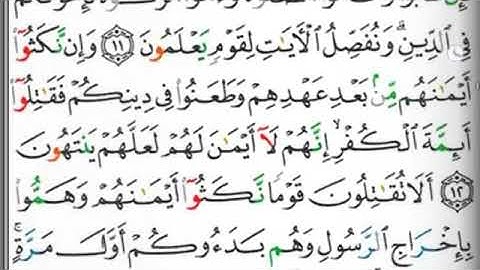 فِى ٱلدِّينِ ۗ وَنُفَصِّلُ ٱلْـَٔايَـٰتِ لِقَوْمٍ يَعْلَمُونَ ١١ وَإِن نَّكَثُوٓا۟
أَيْمَـٰنَهُم مِّنۢ بَعْدِ عَهْدِهِمْ وَطَعَنُوا۟ فِى دِينِكُمْ فَقَـٰتِلُوٓا۟
أَئِمَّةَ ٱلْكُفْرِ ۙ إِنَّهُمْ لَآ أَيْمَـٰنَ لَهُمْ لَعَلَّهُمْ يَنتَهُونَ
١٢ أَلَا تُقَـٰتِلُونَ قَوْمًا نَّكَثُوٓا۟ أَيْمَـٰنَهُمْ وَهَمُّوا۟
بِإِخْرَاجِ ٱلرَّسُولِ وَهُم بَدَءُوكُمْ أَوَّلَ مَرَّةٍ ۚ